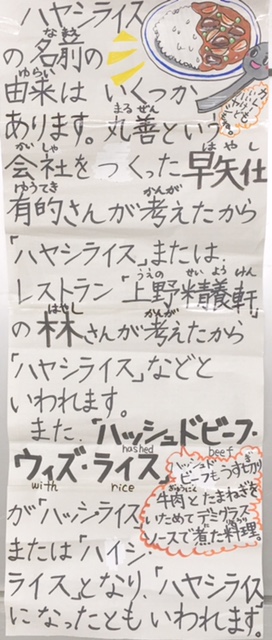 ハヤシライス
の名前の
由来は いくつか
あります。丸善という
会社をつくった早矢仕
有的さんが考えたから
「ハヤシライス」または
レストラン「上野精養軒」
の林さんが考えたから
「ハヤシライス」などと
いわれます。
また、「ハッシュドビーフ・
hashed beef
ウィズ・ライス」
with rice
ハッシュドビーフもうす切り
牛肉とたまねぎを
いためてデミグラス
ソースで煮た料理。
が「ハッシライス」
または「ハイシ・
ライス」となり「ハヤシライス」
になったともいわれます。